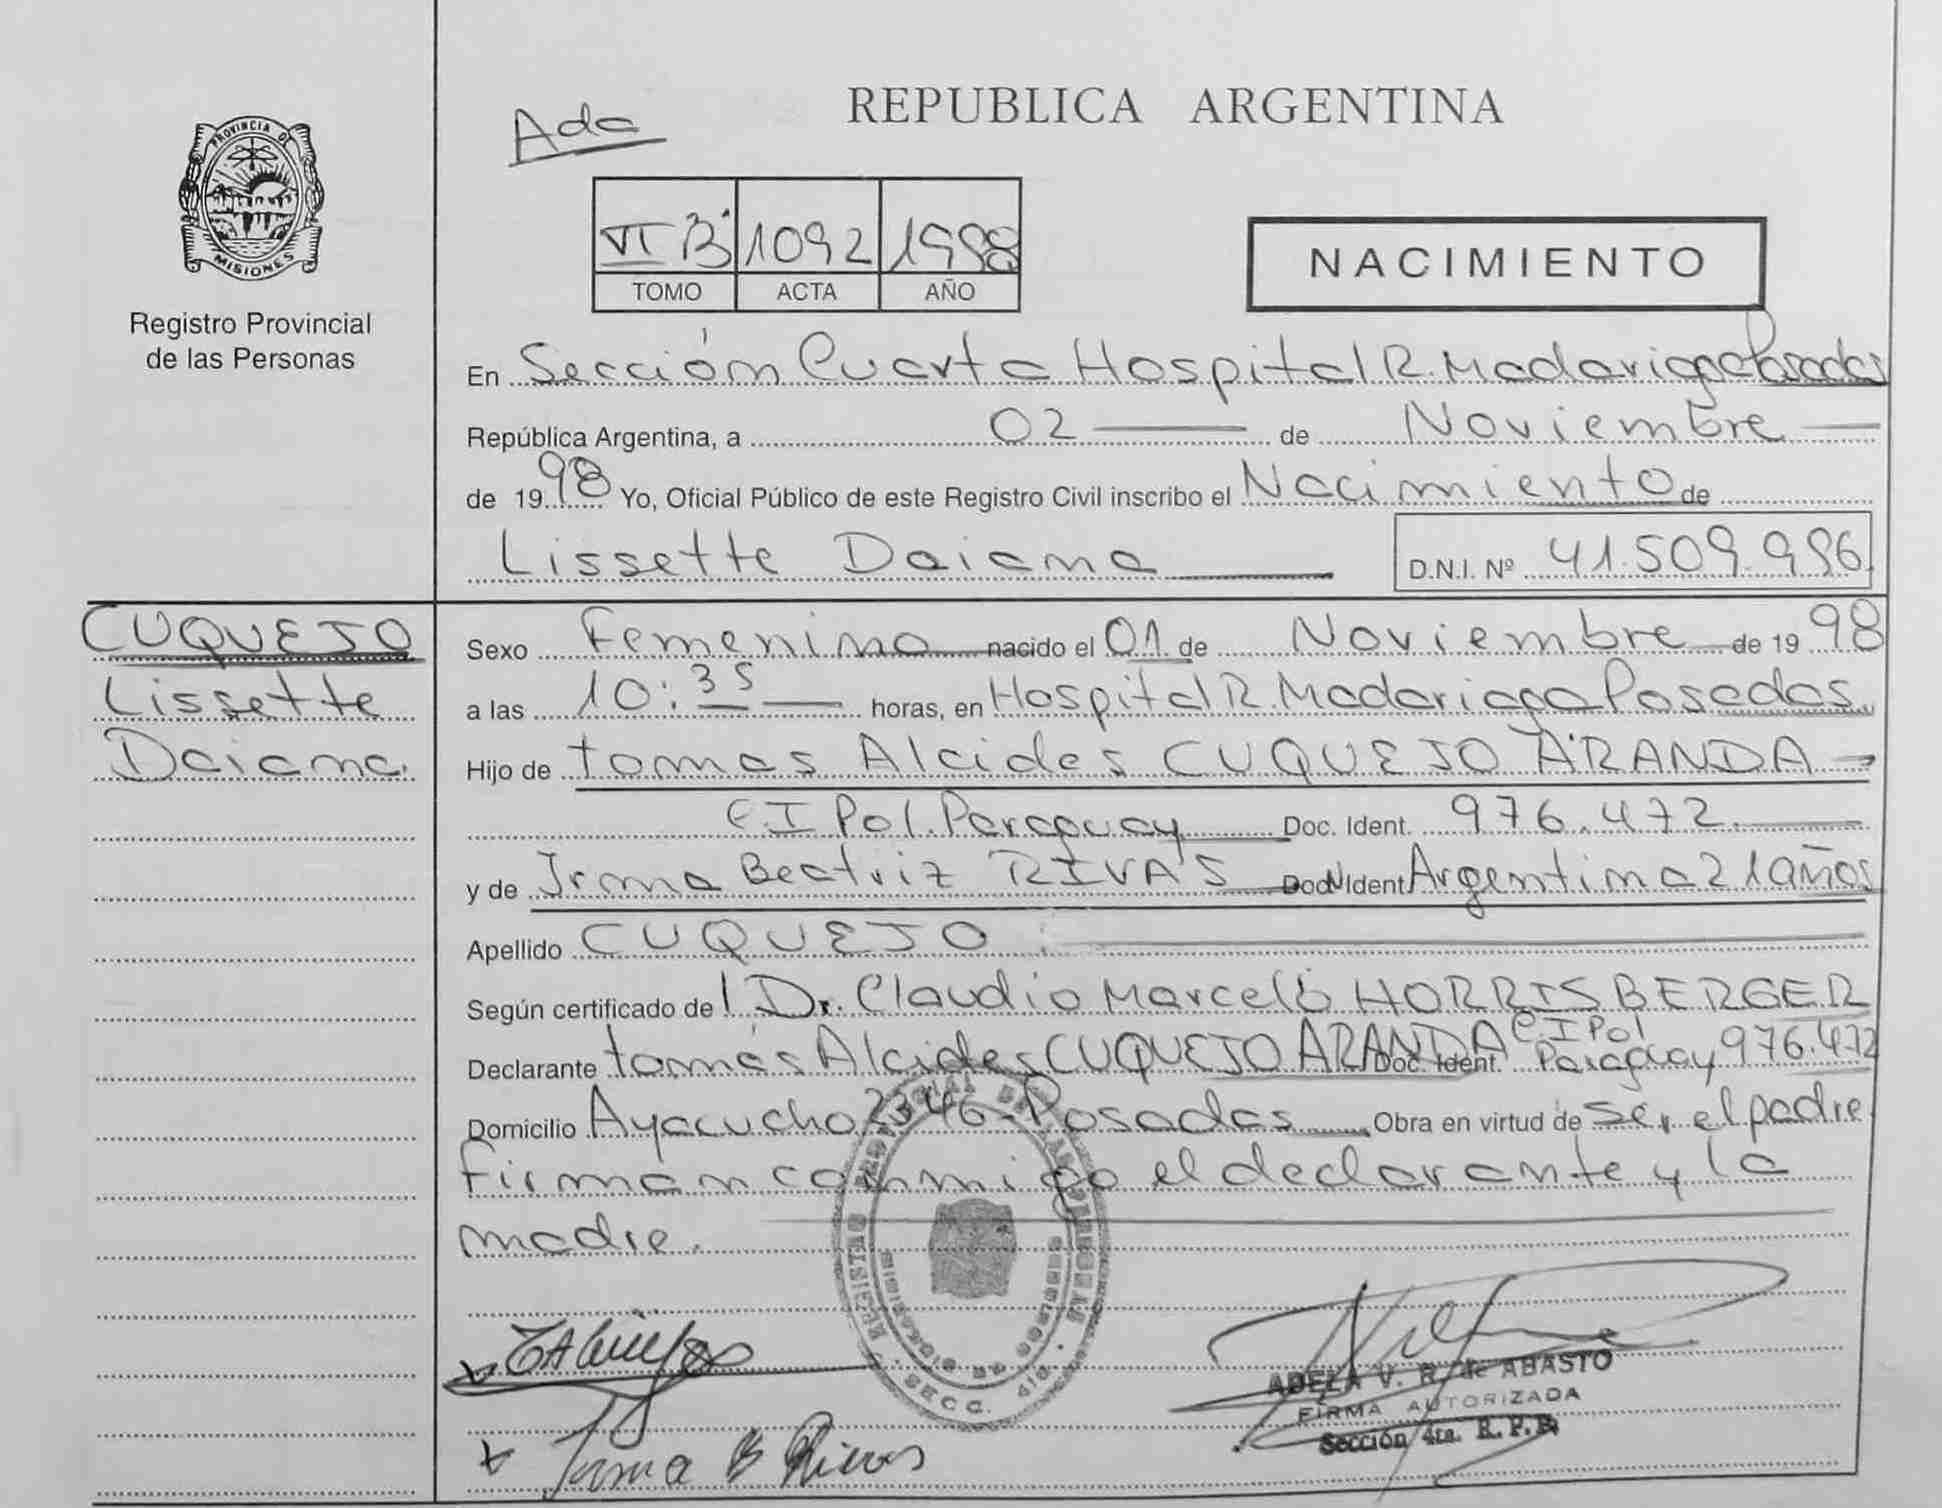 PROVINCIA DE
MISIONES
Registro Provincial
de las Personas
Ada
REPUBLICA ARGENTINA
VI B 1092 1998
TOMO ACTA AÑO
NACIMIENTO
En Sección Cuarta Hospital R. Madariaga Posadas
República Argentina, a 02 de Noviembre
de 1998 Yo, Oficial Público de este Registro Civil inscribo el Nacimiento de
Lissette Daiana D.N.I. Nº 41.509.996
CUQUEJO
Lissette
Daiana
Sexo Femenino nacido el 01 de Noviembre de 1998
a las 10:35 horas, en Hospital R. Madariaga Posadas
Hijo de tomas Alcides CUQUEJO ARANDA
C I Pol. Paraguay Doc. Ident. 976.472
y de Irma Beatriz RIVAS Doc. Ident Argentina 21 años
Apellido CUQUEJO
Según certificado del Dr. Claudio Marcelo HORRISBERGER
Declarante tomás Alcides CUQUEJO ARANDA Doc. Ident. C.I Pol Paraguay 976.472
Domicilio Ayacucho 2346 - Posadas Obra en virtud de ser el padre
firman conmigo el declarante y la
madre.
ADELA V. R. de ABASTO
FIRMA AUTORIZADA
Sección 4ta. R. P. P.
Irma B Rivas